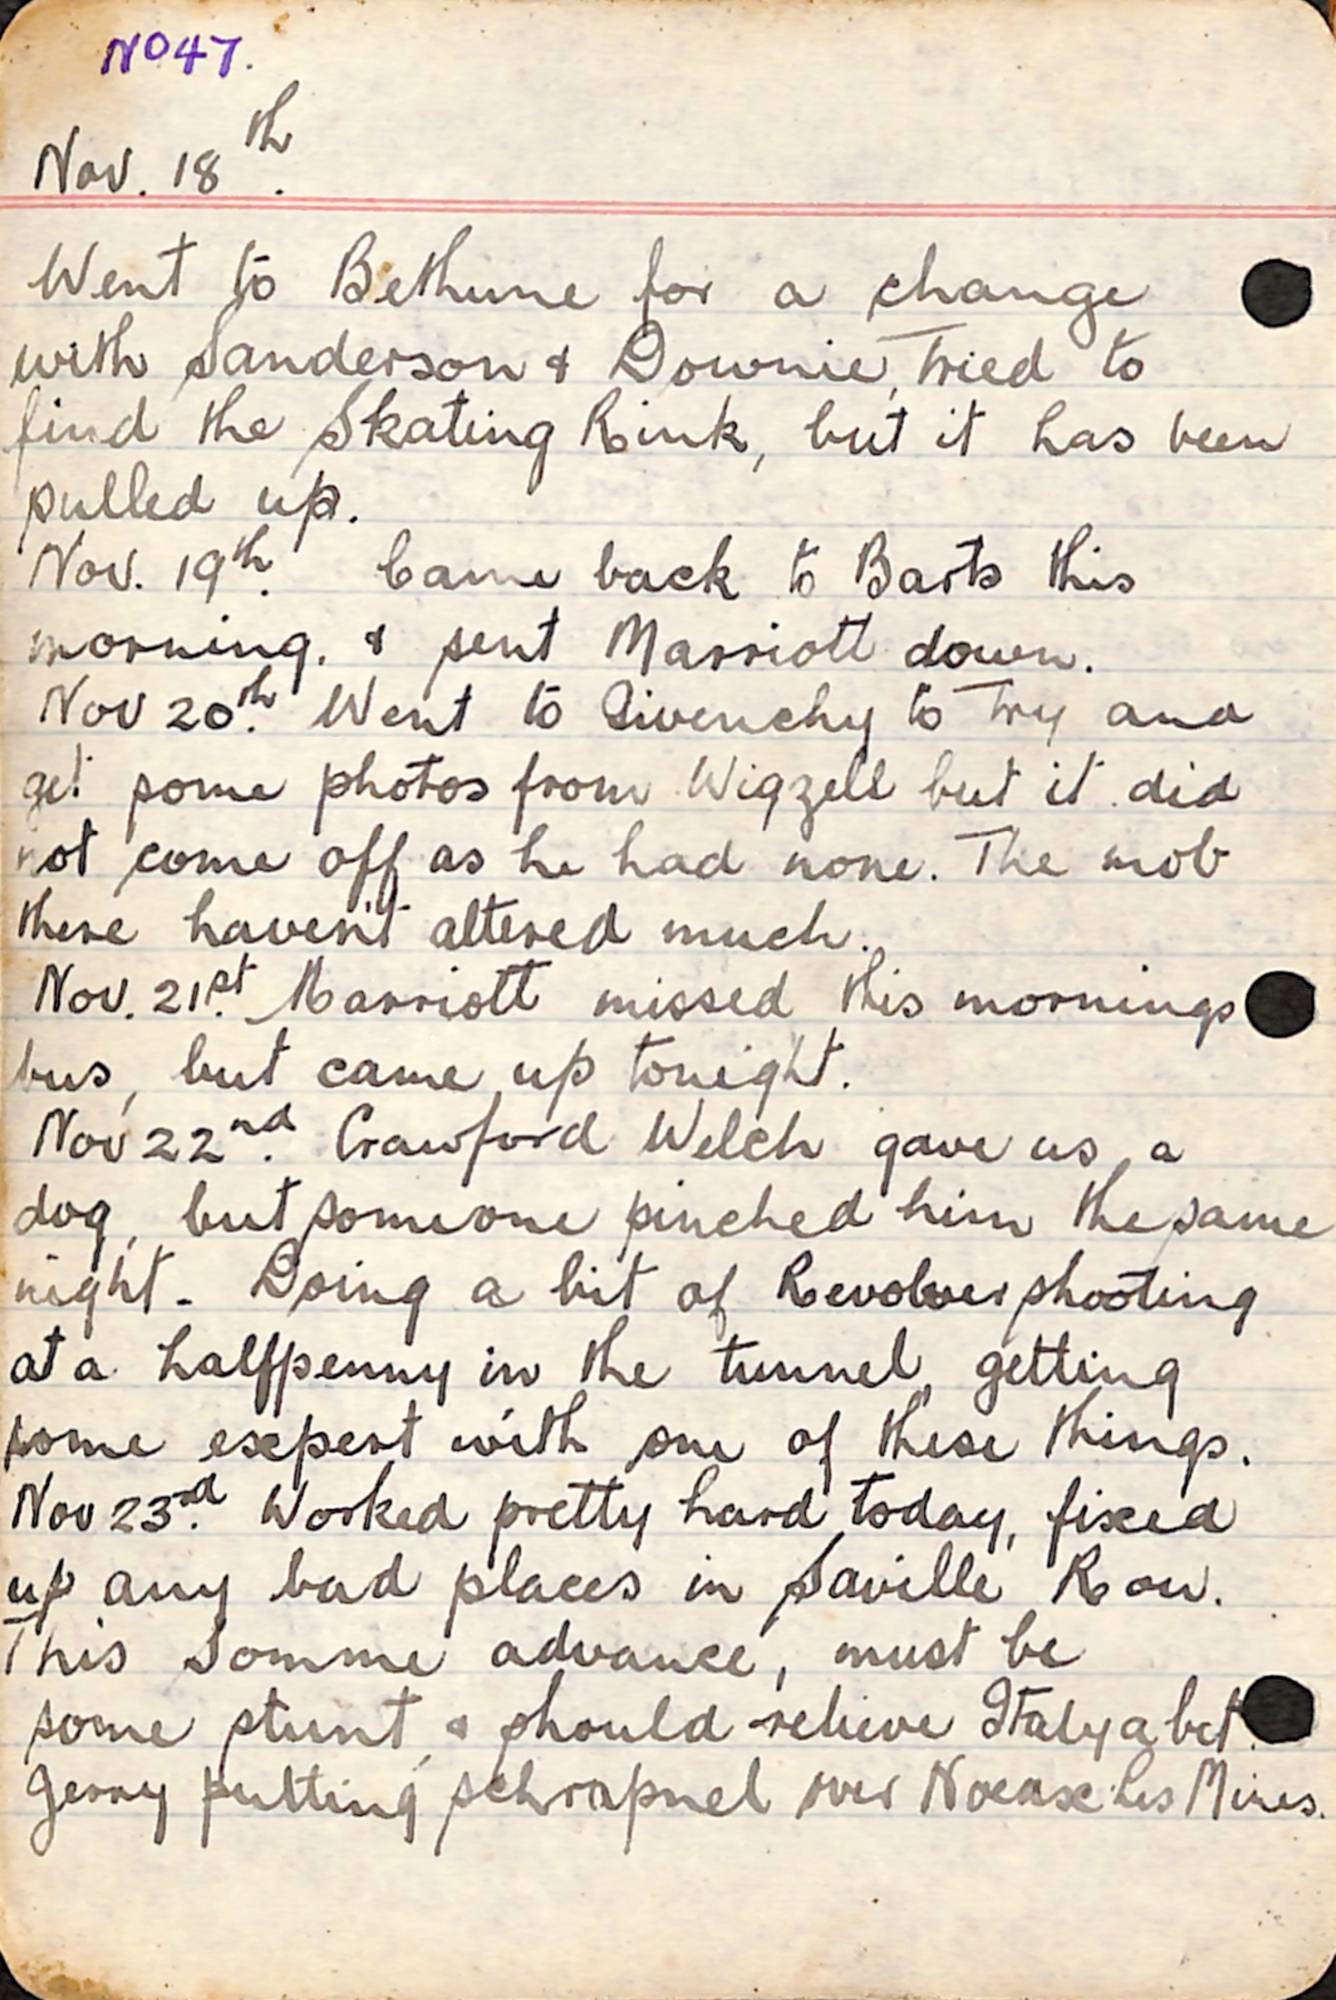 No 47.
Nov. 18th.
Went to Bethune for a change
with Sanderson & Downie, tried to
find the Skating Rink, but it has been
pulled up.
Nov. 19th. Came back to Barts this
morning. & sent Marriott down.
Nov 20th. Went to Givenchy to try and
get some photos from Wigzell but it did
not come off as he had none. The mob
there haven't altered much.
Nov. 21st. Marriott missed this mornings
bus, but came up tonight.
Nov 22nd. Crawford Welch gave us a
dog, but someone pinched him the same
night. Doing a bit of Revolver shooting
at a halfpenny in the tunnel, getting
some expert with one of these things.
Nov 23rd. Worked pretty hard today, fixed
up any bad places in Saville Row.
This Somme advance, must be
some stunt, & should relieve Italy a bit.
Jerry putting schrapnel over Noeux les Mines.